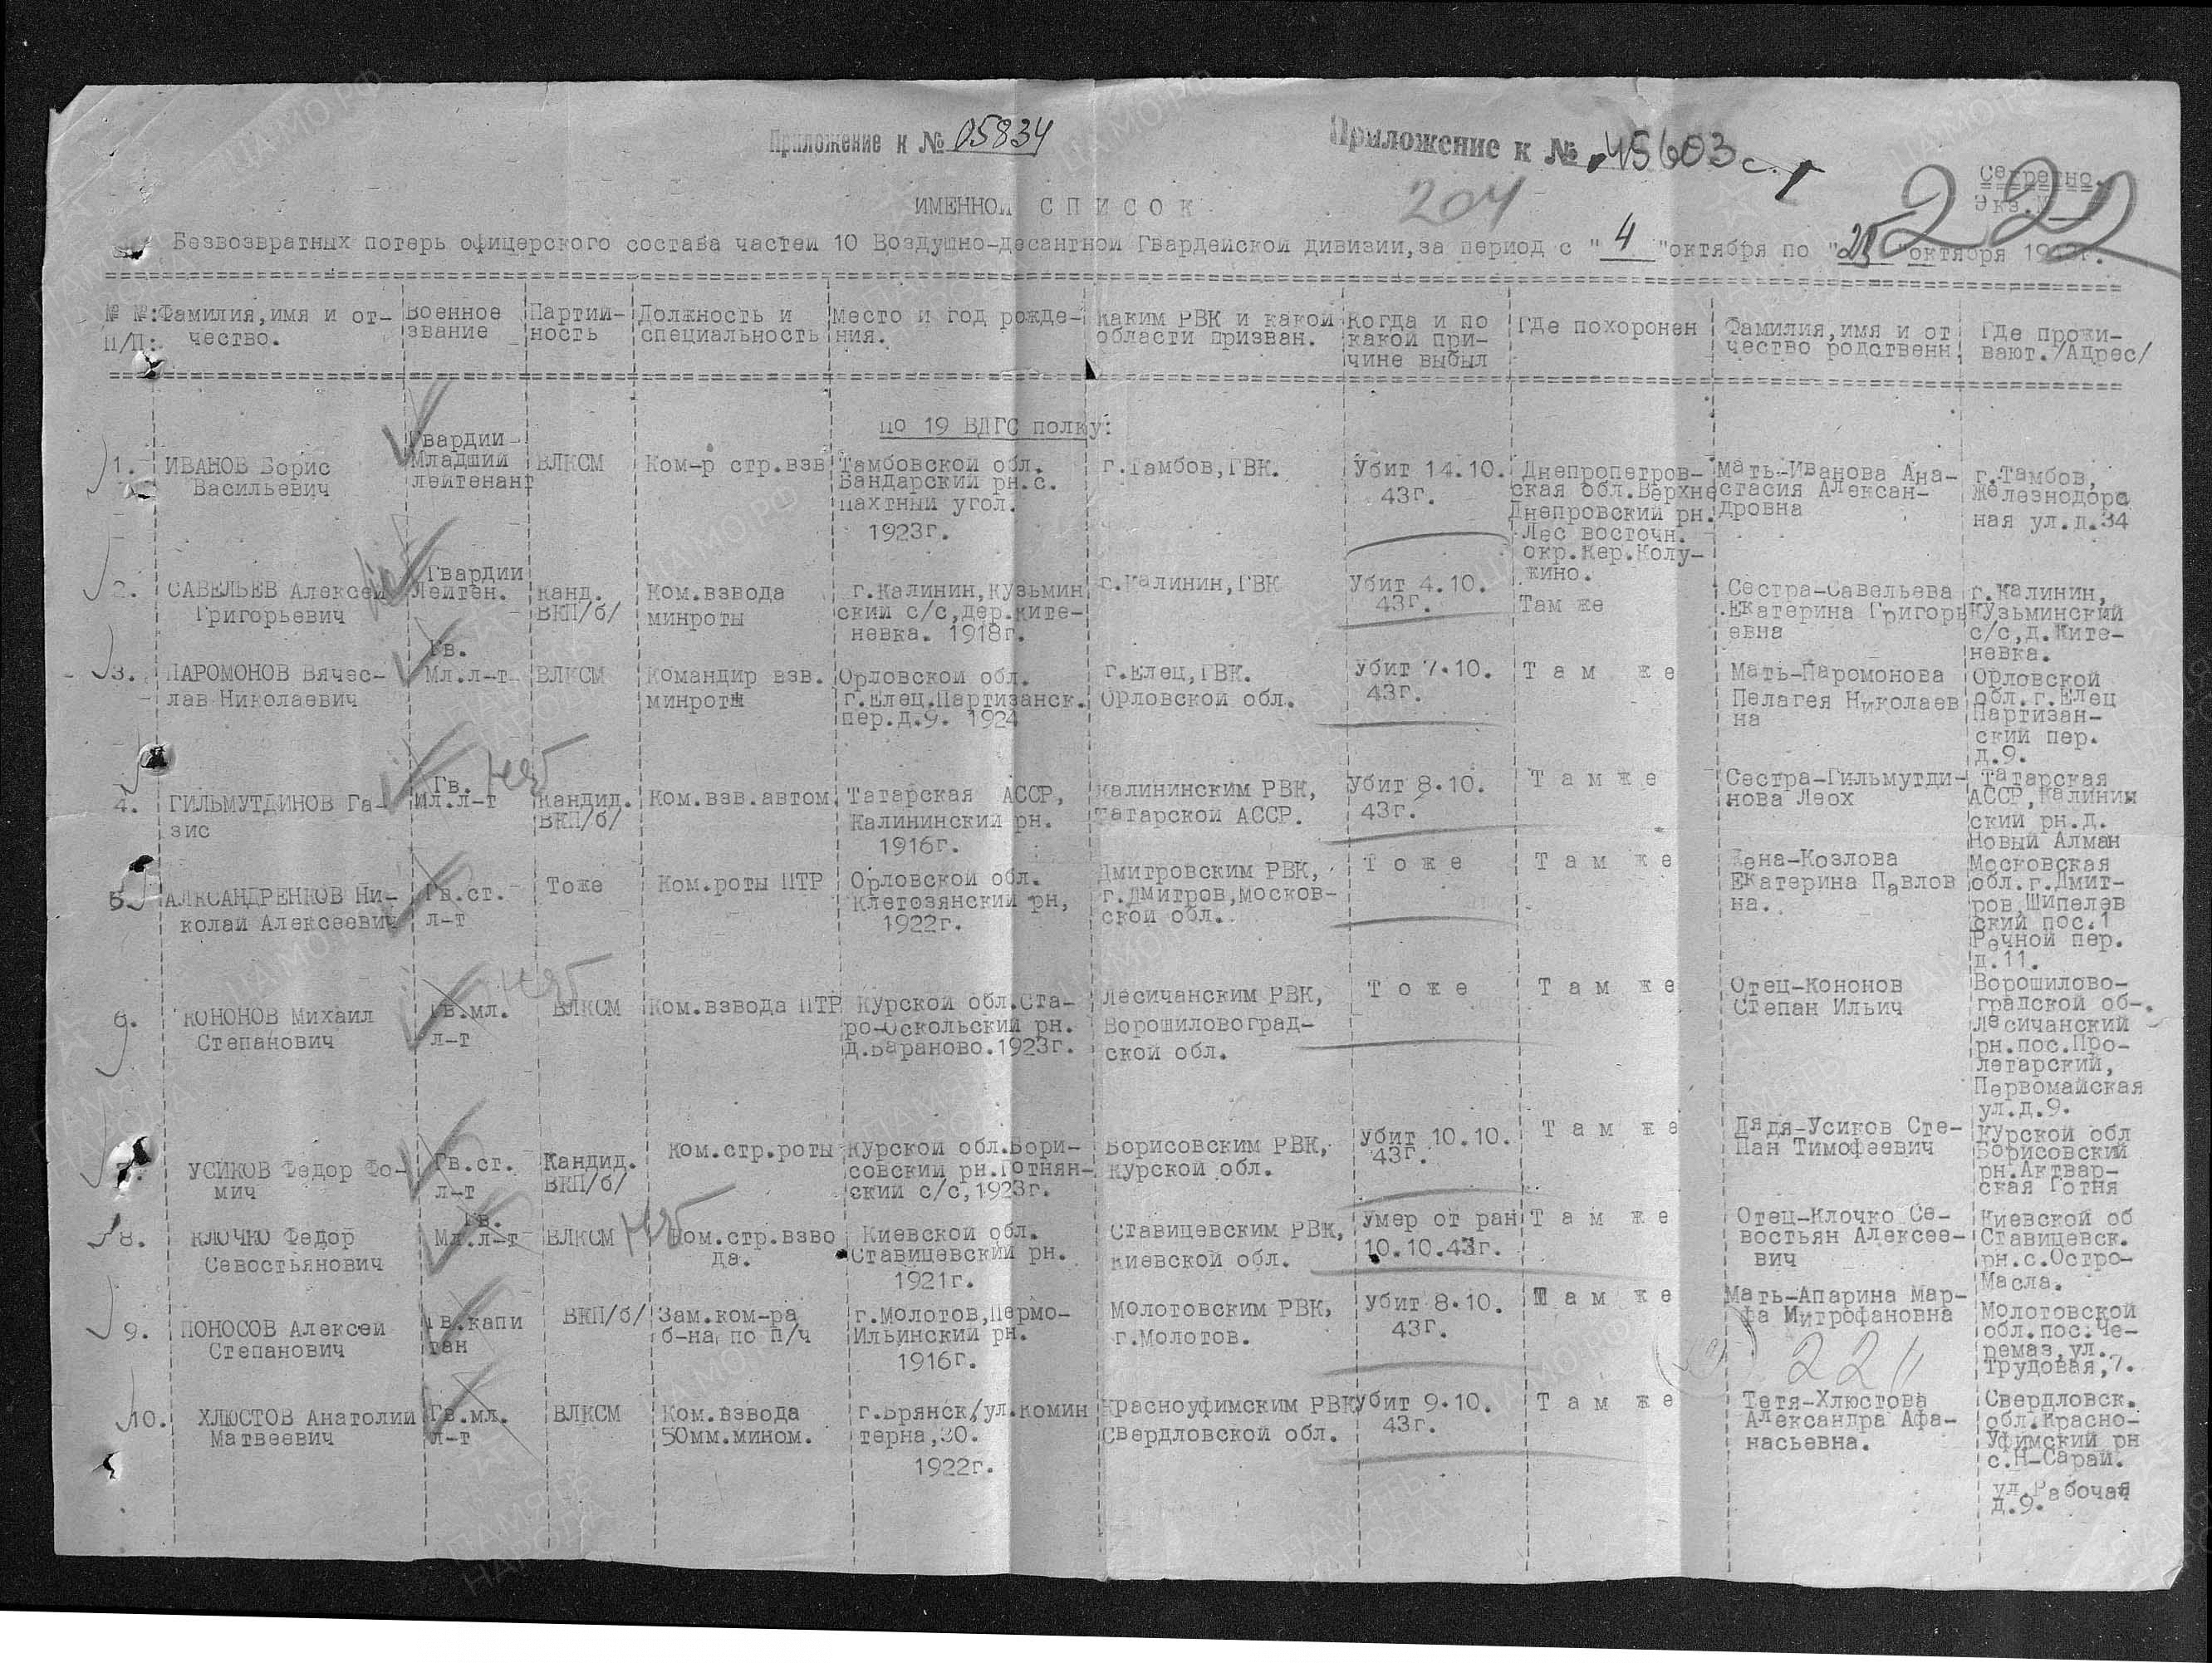 Приложение к № 05834
Приложение к № 45603с.
204
Секретно.
Экз.
222
ИМЕННОЙ СПИСОК
Безвозвратных потерь офицерского состава частей 10 Воздушно-десантной Гвардейской дивизии,за период с "4"октября по "25"октября 1943г.
№ №: п/п:
Фамилия,имя и от-
чество.
Военное
звание
Партий-
ность
Должность и
специальность
Место и год рожде-
ния.
Каким РВК и какой
области призван.
Когда и по
какой при-
чине выбыл
Где похоронен
Фамилия,имя и от
чество родственн.
Где прожи-
вают./Адрес/
по 19 ВДГС полку:
1.
ИВАНОВ Борис
Васильевич
Гвардии
Младший
лейтенант
ВЛКСМ
Ком-р стр.взв
Тамбовской обл.
Бандарский рн.с.
пахтный угол.
1923г.
г.Тамбов,ГВК.
Убит 14.10.
43г.
Днепропетров-
ская обл.Верхне
Днепровский рн.
Лес восточн.
окр.Хер.Колу-
жино.
Мать-Иванова Ана-
стасия Алексан-
дровна
г.Тамбов,
Железнодоро
ная ул.д.34
2.
САВЕЛЬЕВ Алексей
Григорьевич
Гвардии
Лейтен.
Канд.
ВКП/б/
Ком.взвода
минроты
г.Калинин,Кузьмин
ский с/с,дер.Ките-
невка. 1918г.
г.Калинин,ГВК
Убит 4.10.
43г.
Там же
Сестра-Савельева
Екатерина Григорь
евна
г.Калинин,
Кузьминский
с/с,д.Ките-
невка.
3.
ПАРОМОНОВ Вячес-
лав Николаевич
Гв.
Мл.л-т
ВЛКСМ
Командир взв.
минроты
Орловской обл.
г.Елец.Партизанск.
пер.д.9. 1924
г.Елец,ГВК.
Орловской обл.
Убит 7.10.
43г.
Там же
Мать-Паромонова
Пелагея Николаев
на
Орловской
обл.г.Елец
Партизан-
ский пер.
д.9.
4.
ГИЛЬМУТДИНОВ Га-
зис
Гв.
Мл.л-т
Кандид.
ВКП/б/
Ком.взв.автом.
Татарская АССР,
Калининский рн.
1916г.
Калининским РВК,
Татарской АССР.
Убит 8.10.
43г.
Там же
Сестра-Гильмутди-
нова Леох
Татарская
АССР,Калинин
ский рн.д.
Новый Алман
5.
АЛКСАНДРЕНКОВ Ни-
колай Алексеевич
Гв.ст.
л-т
Тоже
Ком.роты ПТР
Орловской обл.
Клетозянский рн,
1922г.
Дмитровским РВК,
г.Дмитров,Москов-
ской обл.
Тоже
Там же
Жена-Козлова
Екатерина Павлов
на.
Московская
обл.г.Дмит-
ров,Шипелев
ский пос.1
Речной пер.
д.11.
6.
КОНОНОВ Михаил
Степанович
Гв.мл.
л-т
ВЛКСМ
Ком.взвода ПТР
Курской обл.Ста-
ро-Оскольский рн.
д.Бараново.1923г.
Лесичанским РВК,
Ворошиловоград-
ской обл.
Тоже
Там же
Отец-Кононов
Степан Ильич
Ворошилово-
градской об-.
Лесичанский
рн.пос.Про-
летарский,
Первомайская
ул.д.9.
УСИКОВ Федор Фо-
мич
Гв.ст.
л-т
Кандид.
ВКП/б/
Ком.стр.роты
Курской обл.Бори-
совский рн.Готнян-
ский с/с,1923г.
Борисовским РВК,
Курской обл.
Убит 10.10.
43г.
Там же
Дядя-Усиков Сте-
пан Тимофеевич
Курской обл
Борисовский
рн.Актвар-
ская Готня
8.
КЛОЧКО Федор
Севостьянович
Гв.
Мл.л-т
ВЛКСМ
Ком.стр.взво
да.
Киевской обл.
Ставицевский рн.
1921г.
Ставицевским РВК,
Киевской обл.
Умер от ран
10.10.43г.
Там же
Отец-Клочко Се-
востьян Алексее-
вич
Киевской об
Ставицевск.
рн.с.Остро-
Масла.
9.
ПОНОСОВ Алексей
Степанович
Гв.капи
тан
ВКП/б/
Зам.ком-ра
б-на по п/ч
г.Молотов,Пермо-
Ильинский рн.
1916г.
Молотовским РВК,
г.Молотов.
Убит 8.10.
43г.
Там же
Мать-Апарина Мар-
фа Митрофановна
Молотовской
обл.пос.Че-
ремаз,ул.
Трудовая,7.
10.
ХЛЮСТОВ Анатолий
Матвеевич
Гв.мл.
л-т
ВЛКСМ
Ком.взвода
50мм.мином.
г.Брянск,ул.Комин
терна,30.
1922г.
Красноуфимским РВК
Свердловской обл.
Убит 9.10.
43г.
Там же
Тетя-Хлюстова
Александра Афа-
насьевна.
Свердловск.
обл.Красно-
Уфимский рн
с.Н-Сарай.
ул.Рабочая
д.9.